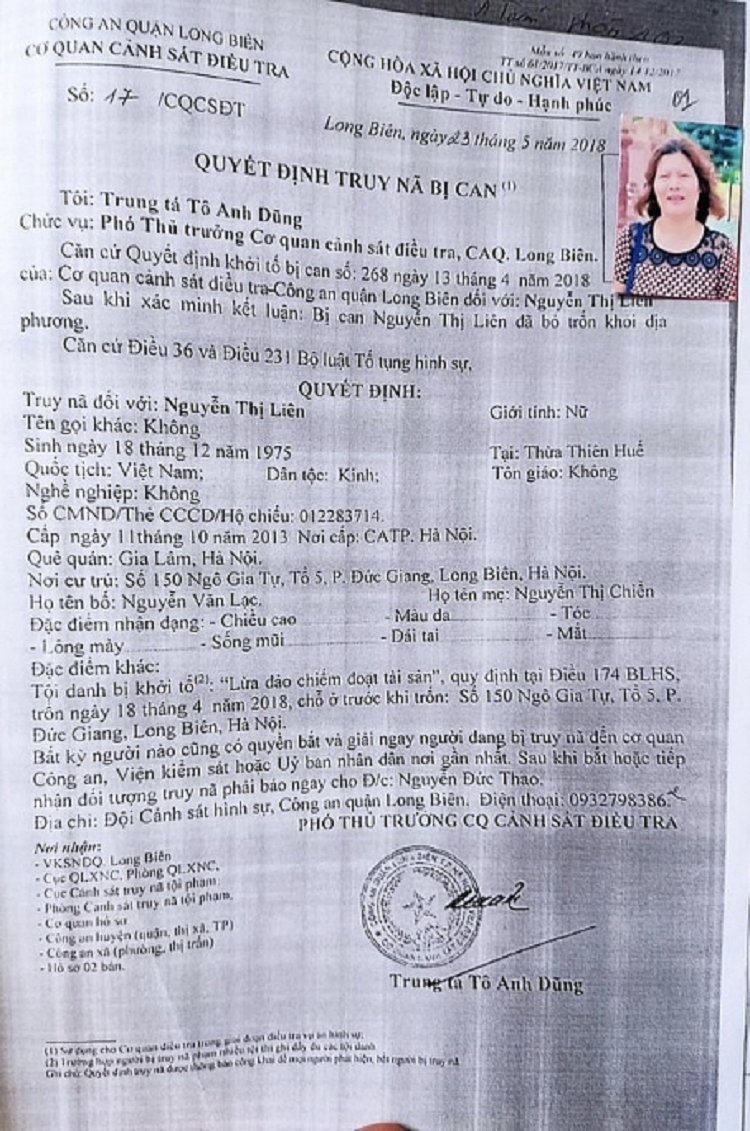 CÔNG AN QUẬN LONG BIÊN
CƠ QUAN CẢNH SÁT ĐIỀU TRA
Số: 17 /CQCSĐT
Mẫu số
TT số 61/2017/TT-BCA ngày 14/12/2017
CỘNG HÒA XÃ HỘI CHỦ NGHĨA VIỆT NAM
Độc lập - Tự do - Hạnh phúc
01
Long Biên, ngày 23 tháng 5 năm 2018
QUYẾT ĐỊNH TRUY NÃ BỊ CAN (1)
Tôi: Trung tá Tô Anh Dũng
Chức vụ: Phó Thủ trưởng Cơ quan cảnh sát điều tra, CAQ. Long Biên.
Căn cứ Quyết định khởi tố bị can số: 268 ngày 13 tháng 4 năm 2018
của: Cơ quan cảnh sát điều tra-Công an quận Long Biên đối với: Nguyễn Thị Liên
Sau khi xác minh kết luận: Bị can Nguyễn Thị Liên đã bỏ trốn khỏi địa
phương.
Căn cứ Điều 36 và Điều 231 Bộ luật Tố tụng hình sự,
QUYẾT ĐỊNH:
Truy nã đối với: Nguyễn Thị Liên Giới tính: Nữ
Tên gọi khác: Không
Sinh ngày 18 tháng 12 năm 1975 Tại: Thừa Thiên Huế
Quốc tịch: Việt Nam; Dân tộc: Kinh; Tôn giáo: Không
Nghề nghiệp: Không
Số CMND/Thẻ CCCD/Hộ chiếu: 012283714.
Cấp ngày 11tháng 10 năm 2013 Nơi cấp: CATP. Hà Nội.
Quê quán: Gia Lâm, Hà Nội.
Nơi cư trú: Số 150 Ngô Gia Tự, Tổ 5, P. Đức Giang, Long Biên, Hà Nội.
Họ tên bố: Nguyễn Văn Lạc, Họ tên mẹ: Nguyễn Thị Chiến
Đặc điểm nhận dạng: - Chiều cao - Màu da - Tóc
- Lông mày - Sống mũi - Dái tai - Mắt
Đặc điểm khác:
Tội danh bị khởi tố(2): “Lừa đảo chiếm đoạt tài sản”, quy định tại Điều 174 BLHS,
trốn ngày 18 tháng 4 năm 2018, chỗ ở trước khi trốn: Số 150 Ngô Gia Tự, Tổ 5, P.
Đức Giang, Long Biên, Hà Nội.
Bất kỳ người nào cũng có quyền bắt và giải ngay người đang bị truy nã đến cơ quan
Công an, Viện kiểm sát hoặc Uỷ ban nhân dân nơi gần nhất. Sau khi bắt hoặc tiếp
nhận đối tượng truy nã phải báo ngay cho Đ/c: Nguyễn Đức Thao.
Địa chỉ: Đội Cảnh sát hình sự, Công an quận Long Biên. Điện thoại: 0932798386.
PHÓ THỦ TRƯỞNG CQ CẢNH SÁT ĐIỀU TRA
Nơi nhận:
- VKSNDQ. Long Biên
- Cục QLXNC, Phòng QLXNC,
- Cục Cảnh sát truy nã tội phạm;
- Phòng Cảnh sát truy nã tội phạm,
- Cơ quan hồ sơ
- Công an huyện (quận, thị xã, TP)
- Công an xã (phường, thị trấn)
- Hồ sơ 02 bản.
Trung tá Tô Anh Dũng
(1) Sử dụng cho Cơ quan điều tra trong giai đoạn điều tra vụ án hình sự;
(2) Trường hợp người bị truy nã phạm nhiều tội thì ghi đầy đủ các tội danh
Ghi chú: Quyết định truy nã được thông báo công khai để mọi người phát hiện, bắt người bị truy nã